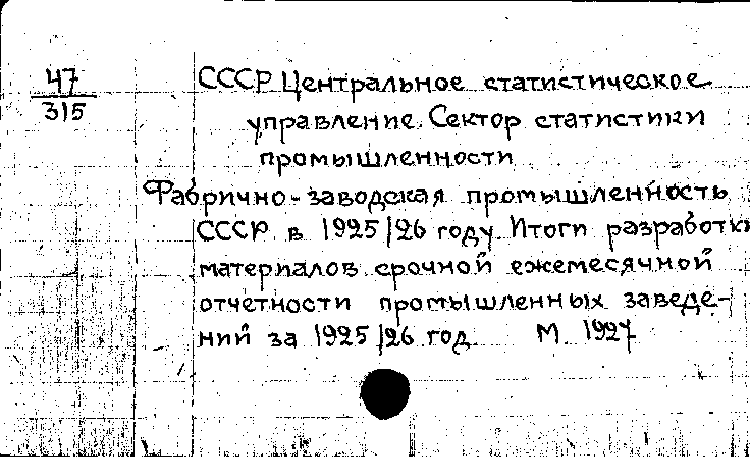 47
315
СССР Центральное статистическое
управление. Сектор статистики
промышленности
Фабрично-заводская промышленность
СССР в 1925/26 году. Итоги разработки
материалов срочной ежемесячной
отчетности промышленных заведе-
ний за 1925/26 год. М. 1927